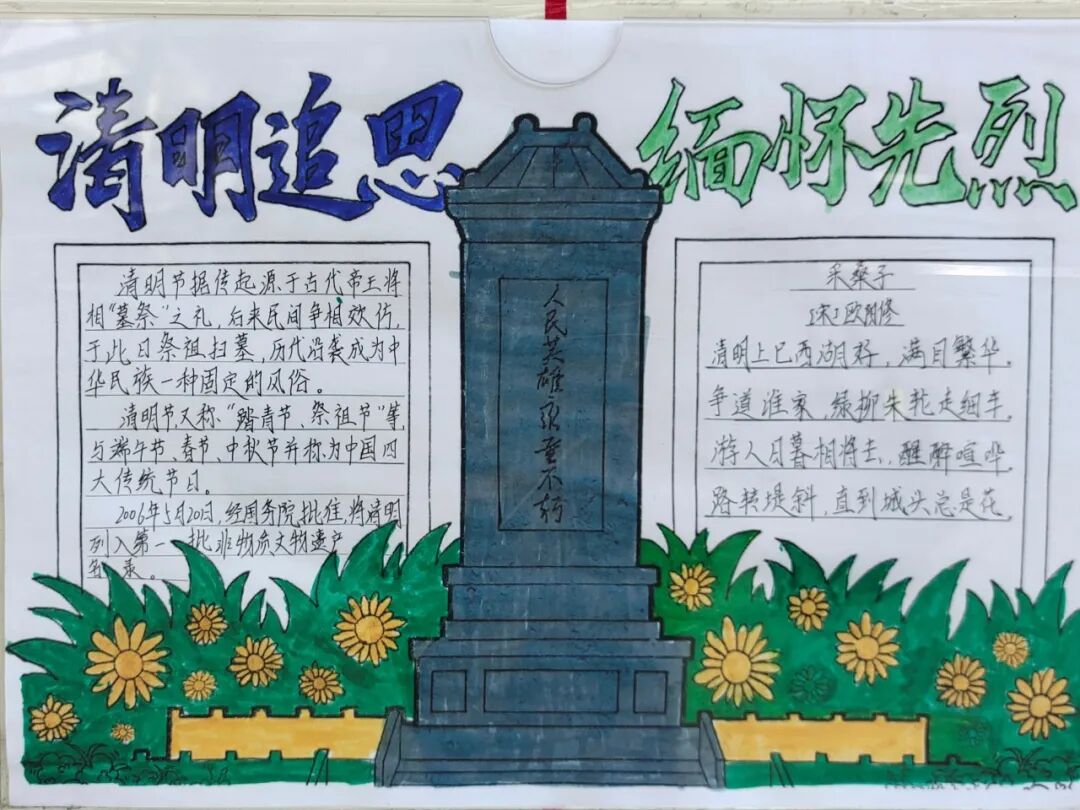 清明追思
缅怀先烈
清明节据传起源于古代帝王将
相"墓祭"之礼，后来民间争相效仿，
于此日祭祖扫墓，历代沿袭成为中
华民族一种固定的风俗。
清明节，又称"踏青节、祭祖节"等，
与端午节、春节、中秋节并称为中国四
大传统节日。
2006年5月20日，经国务院批准，将清明
列入第一批非物质文物遗产
名录。
人民英雄永垂不朽
采桑子
[宋]欧阳修
清明上巳西湖好，满目繁华。
争道谁家，绿柳朱轮走细车。
游人日暮相将去，醒醉喧哗。
路转堤斜，直到城头总是花。